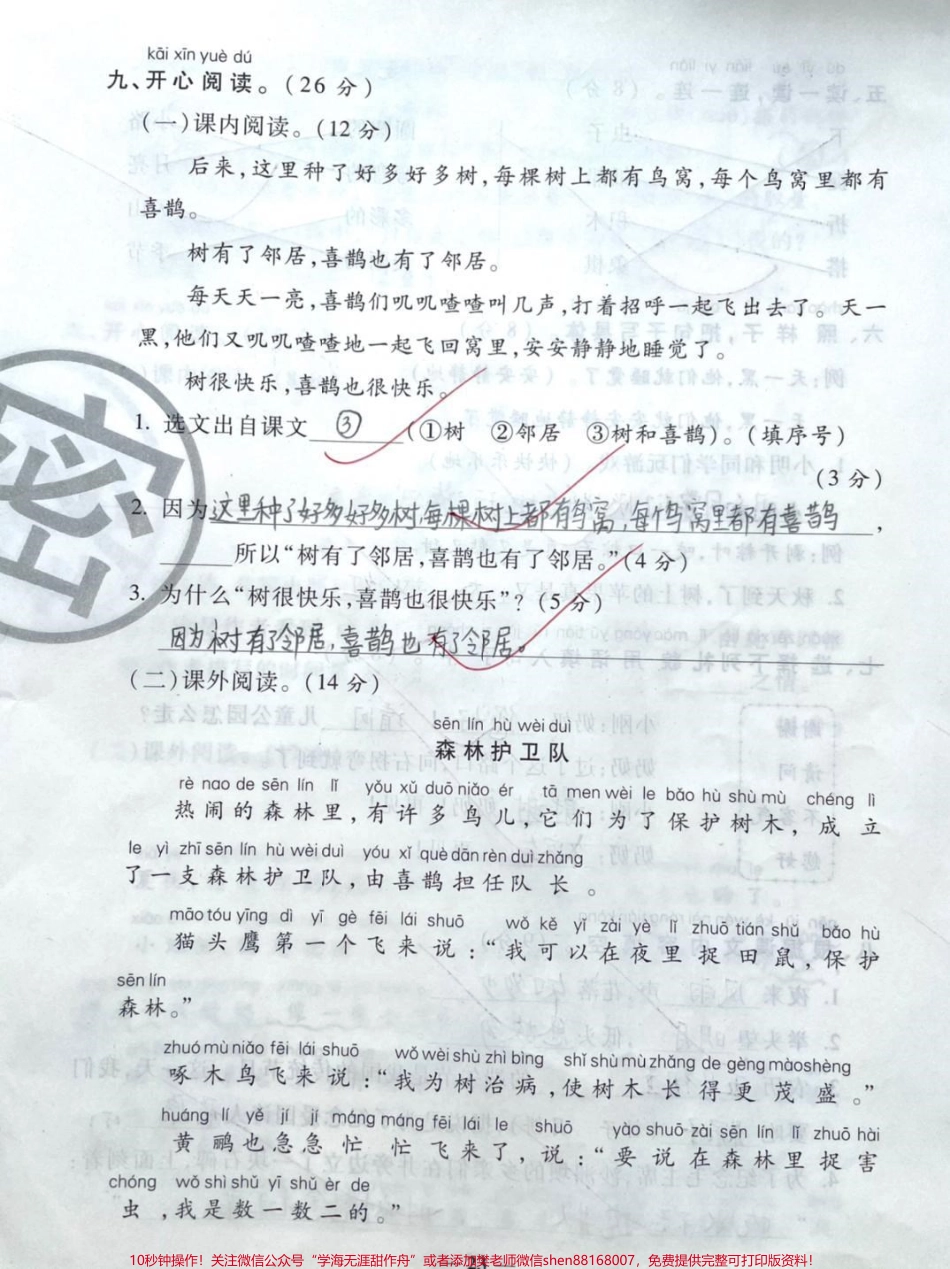 kāi xīn yuè dú
九、开心阅读。(26分)
(一)课内阅读。(12分)
后来,这里种了好多好多树,每棵树上都有鸟窝,每个鸟窝里都有
喜鹊。
树有了邻居,喜鹊也有了邻居。
每天天一亮,喜鹊们叽叽喳喳叫几声,打着招呼一起飞出去了。天一
黑,他们又叽叽喳喳地一起飞回窝里,安安静静地睡觉了。
树很快乐,喜鹊也很快乐。
1. 选文出自课文 ③ (①树 ②邻居 ③树和喜鹊)。(填序号)
(3分)
2. 因为这里种了好多好多树,每棵树上都有鸟窝,每个鸟窝里都有喜鹊,
所以“树有了邻居,喜鹊也有了邻居。”(4分)
3. 为什么“树很快乐,喜鹊也很快乐”? (5分)
因为树有了邻居,喜鹊也有了邻居。
(二)课外阅读。(14分)
sēn lín hù wèi duì
森林护卫队
rè nao de sēn lín lǐ yǒu xǔ duō niǎo ér tā men wèi le bǎo hù shù mù chéng lì
热闹的森林里,有许多鸟儿,它们为了保护树木,成立
le yì zhī sēn lín hù wèi duì yóu xǐ què dān rèn duì zhǎng
了一支森林护卫队,由喜鹊担任队长。
māo tóu yīng dì yī gè fēi lái shuō wǒ kě yǐ zài yè lǐ zhuō tián shǔ bǎo hù
猫头鹰第一个飞来说:“我可以在夜里捉田鼠,保护
sēn lín
森林。”
zhuó mù niǎo fēi lái shuō wǒ wèi shù zhì bìng shǐ shù mù zhǎng de gèng mào shèng
啄木鸟飞来说:“我为树治病,使树木长得更茂盛。”
huáng lí yě jí jí máng máng fēi lái le shuō yào shuō zài sēn lín lǐ zhuō hài
黄鹂也急急忙忙飞来了,说:“要说在森林里捉害
chóng wǒ shì shǔ yī shǔ èr de
虫,我是数一数二的。”
密
21
10秒钟操作！关注微信公众号“学海无涯甜作舟”或者添加樊老师微信shen88168007，免费提供完整可打印版资料！